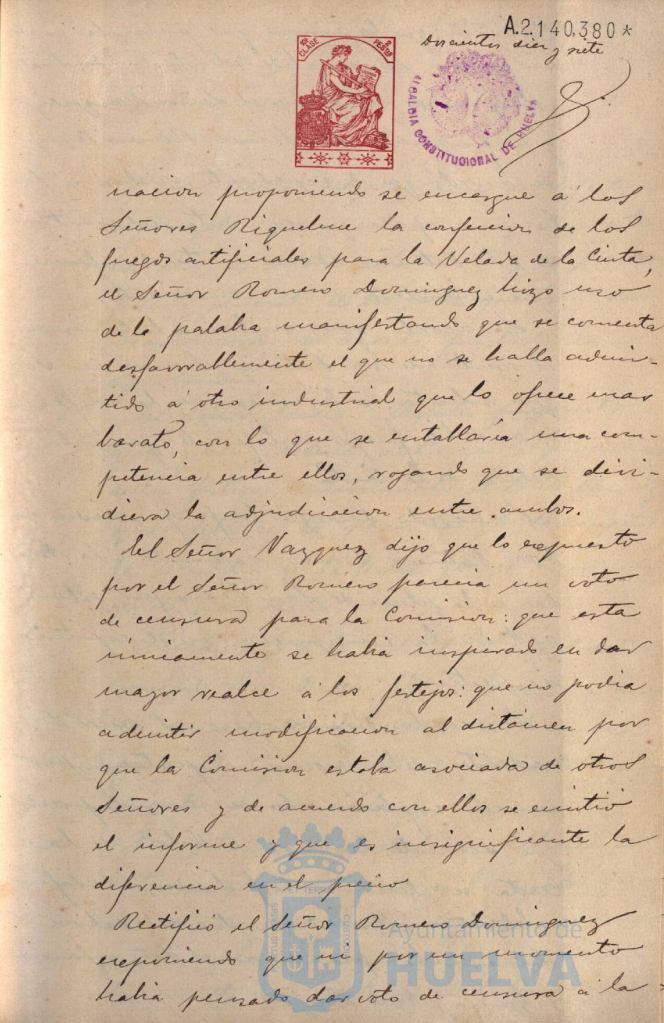 A.2.140.380*
Doscientos diez y siete
10ª CLASE
2 PESETAS
ALCALDIA CONSTITUCIONAL DE HUELVA
nacion proponiendo se encargue á los
Señores Riquelme la confeccion de los
fuegos artificiales para la Velada de la Cinta,
el Señor Romero Dominguez hizo uso
de la palaba manifestando que se comenta
desfavorablemente el que no se halla admi-
tido á otro industrial que lo ofrece mas
barato, con lo que se entablaría una com-
petencia entre ellos, rogando que se divi-
diera la adjudicacion entre ambos.
El Señor Vazquez dijo que lo expuesto
por el Señor Romero parecia un voto
de censura para la Comision: que esta
únicamente se habia inspirado en dar
mayor realce á los festejos: que no podia
admitir modificacion al dictámen por
que la Comision estaba asociada de otros
Señores y de acuerdo con ellos se emitió
el informe y que es insignificante la
diferencia en el precio
Rectificó el Señor Romero Dominguez
exponiendo que ni por un momento
habia pensado dar voto de censura á la
Ayuntamiento de
HUELVA